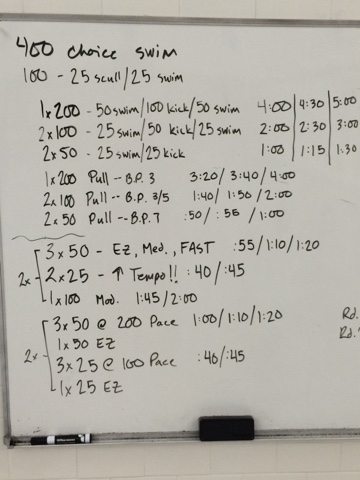 400 choice swim
100 - 25 scull/25 swim
1x200 - 50 swim/100 kick/50 swim 4:00 | 4:30 | 5:00
2x100 - 25 swim/50 kick/25 swim 2:00 | 2:30 | 3:00
2x50 - 25 swim/25 kick 1:00 | 1:15 | 1:30
1x200 Pull -- B.P. 3 3:20 / 3:40 / 4:00
2x100 Pull -- B.P. 3/5 1:40 / 1:50 / 2:00
2x50 Pull -- B.P. 7 :50 / :55 / 1:00
3x50 - EZ, Med., FAST :55/1:10/1:20
2x 2x25 - ↑ Tempo!! :40/:45
1x100 Mod. 1:45/2:00
3x50 @ 200 Pace 1:00/1:10/1:20
1x50 EZ
2x 3x25 @ 100 Pace :40/:45
1x25 EZ
Rd.
Rd.